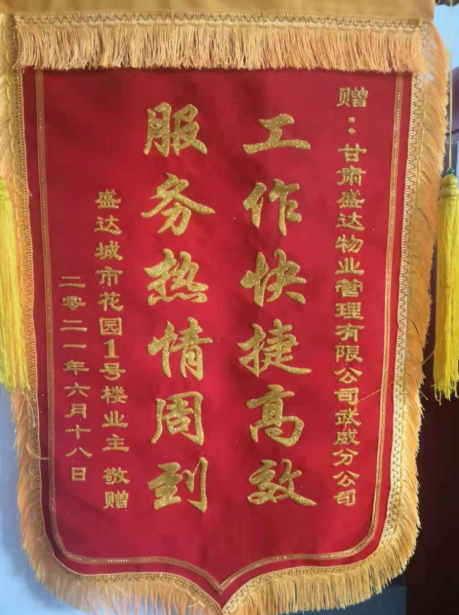 赠：甘肃盛达物业管理有限公司武威分公司
工作快捷高效
服务热情周到
盛达城市花园1号楼业主 敬赠
二零二一年六月十八日